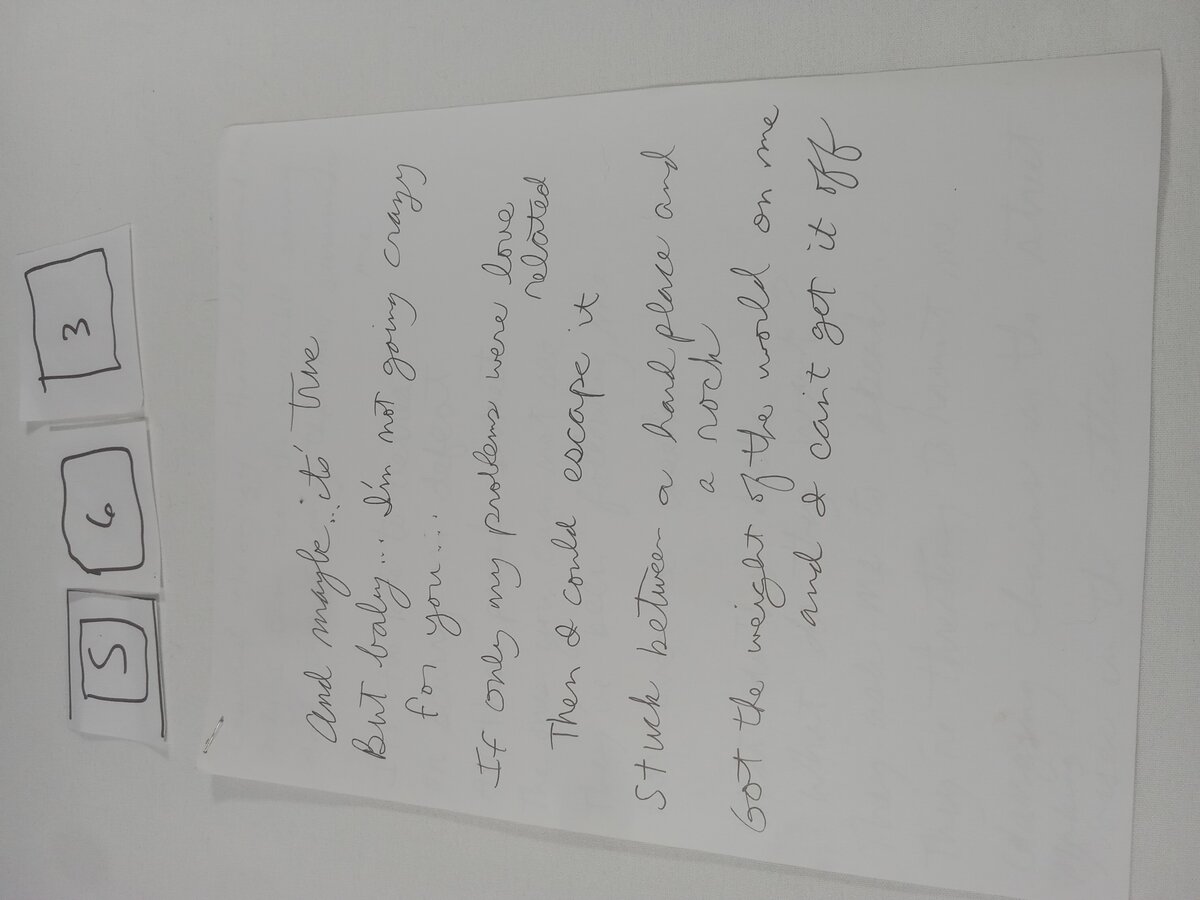 5 6 3
And maybe... it's true
But baby... I'm not going crazy
for you...
If only my problems were love
related
Then I could escape it
Stuck between a hard place and
a rock
Got the weight of the world on me
and I can't get it off